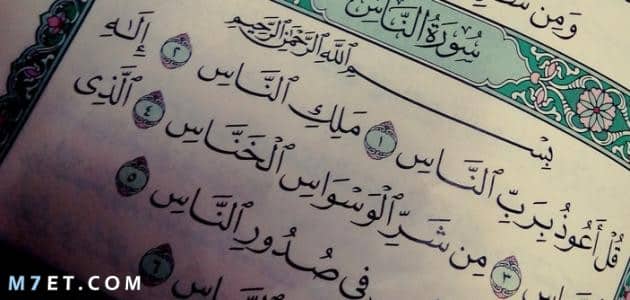 وَمِن
سُورَةُ النَّاسِ
بِسْمِ ٱللَّهِ ٱلرَّحْمَٰنِ ٱلرَّحِيمِ
قُلْ أَعُوذُ بِرَبِّ ٱلنَّاسِ ١ مَلِكِ ٱلنَّاسِ ٢ إِلَٰهِ
٣ مِن شَرِّ ٱلْوَسْوَاسِ ٱلْخَنَّاسِ ٤ ٱلَّذِى
فِى صُدُورِ ٱلنَّاسِ ٥
٦
M7ET.COM